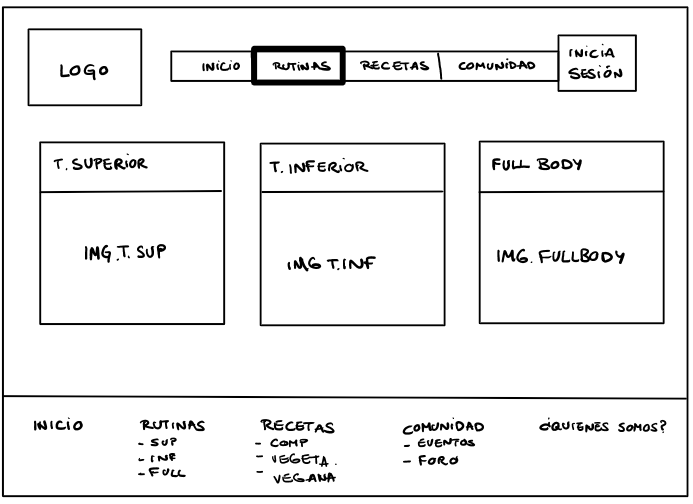 LOGO
INICIO RUTINAS RECETAS COMUNIDAD
INICIA
SESIÓN
T. SUPERIOR
IMG.T. SUP
T. INFERIOR
IMG T.INF
FULL BODY
IMG. FULLBODY
INICIO
RUTINAS
- SUP
- INF
- FULL
RECETAS
- COMP
- VEGETA.
- VEGANA
COMUNIDAD
- EVENTOS
- FORO
¿QUIENES SOMOS?